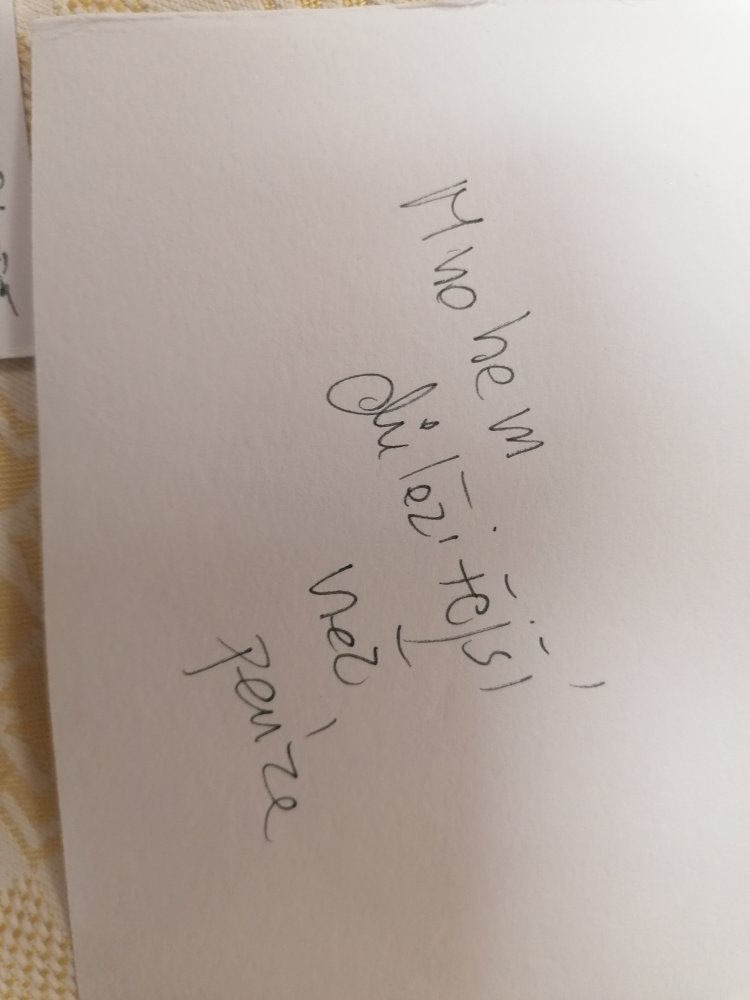 Mnohem
důležitější
než
peníze